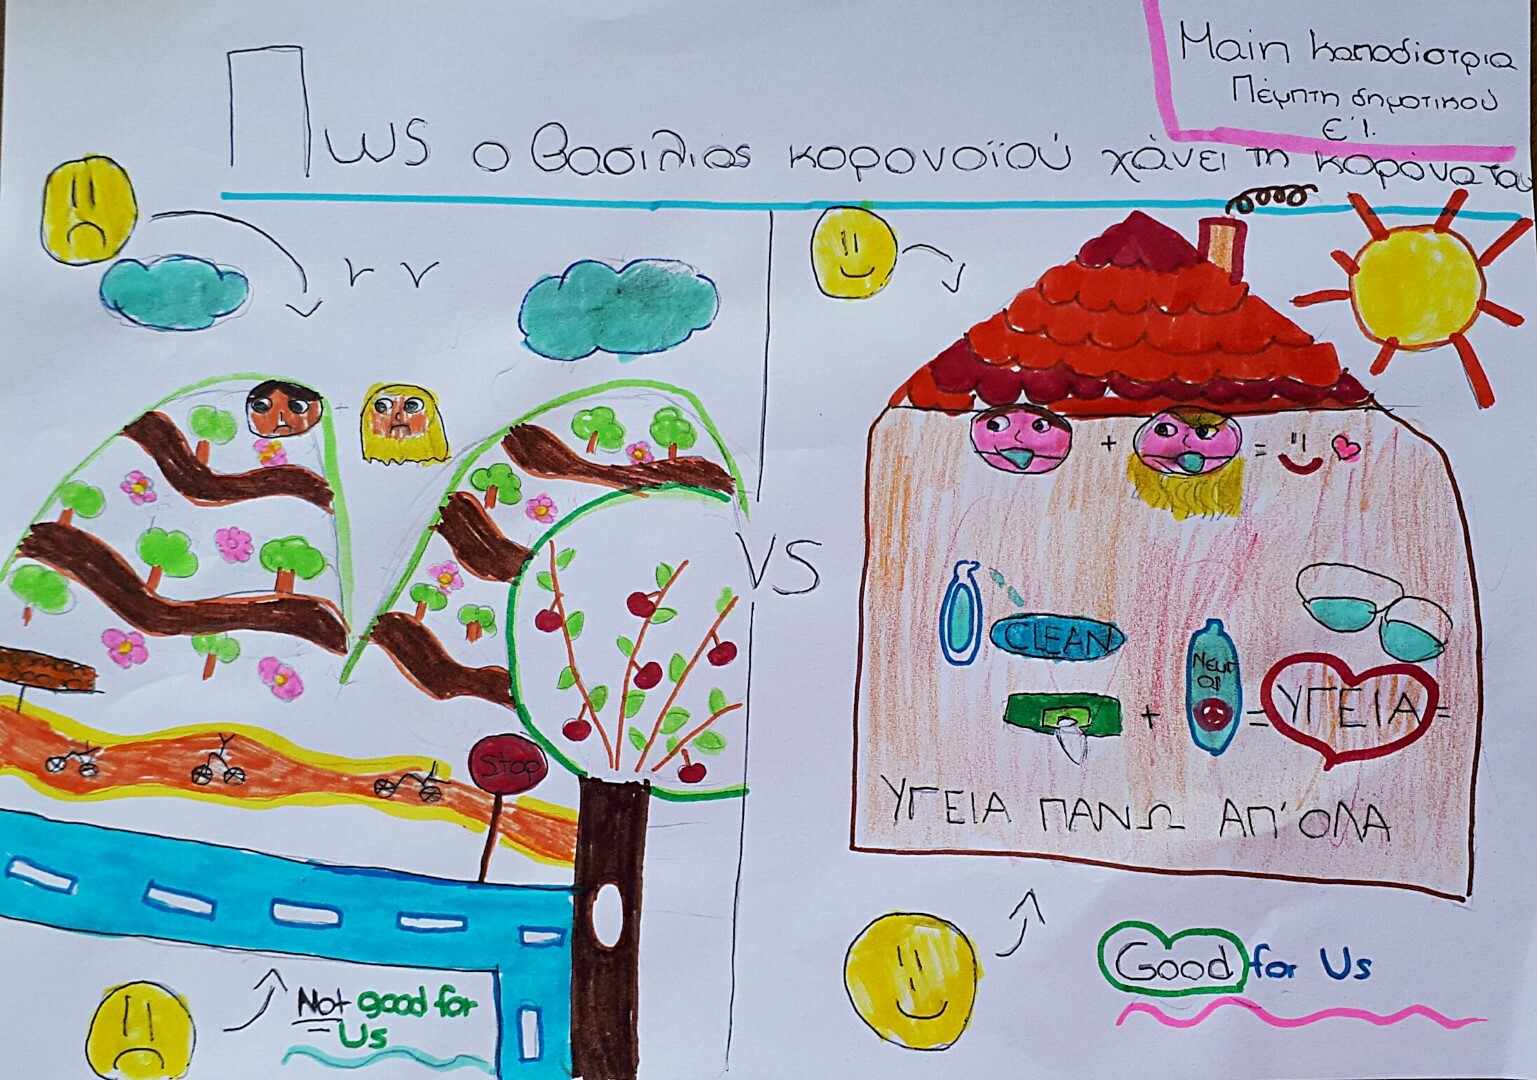 Μαίη Καποδίστρια
Πέμπτη δημοτικού
Ε'1.
Πως ο βασιλιας κορονοϊού χάνει τη κορόνα του
VS
Stop
CLEAN
Neutral
ΥΓΕΙΑ
ΥΓΕΙΑ ΠΑΝΩ ΑΠ' ΟΛΑ
Not good for
Us
Good for Us